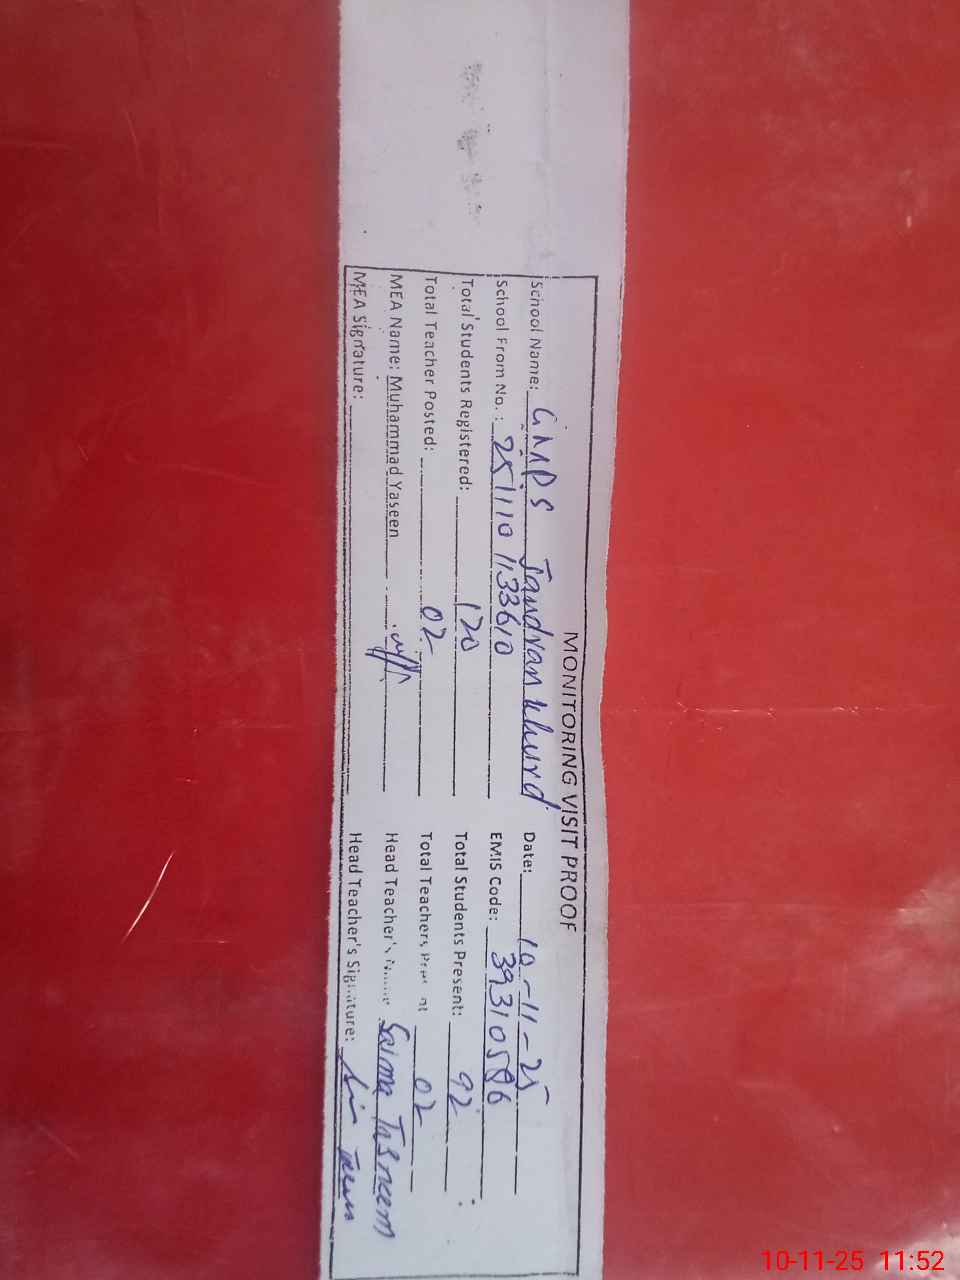 MONITORING VISIT PROOF
School Name: GMPS Jandran khurd Date: 10-11-25
School From No.: 2511101133610 EMIS Code: 39310586
Total Students Registered: 120 Total Students Present: 92
Total Teacher Posted: 02 Total Teachers Present 02
MEA Name: Muhammad Yaseen Head Teacher's Name Saima Tasneem
MEA Signature: Head Teacher's Signature:
10-11-25 11:52